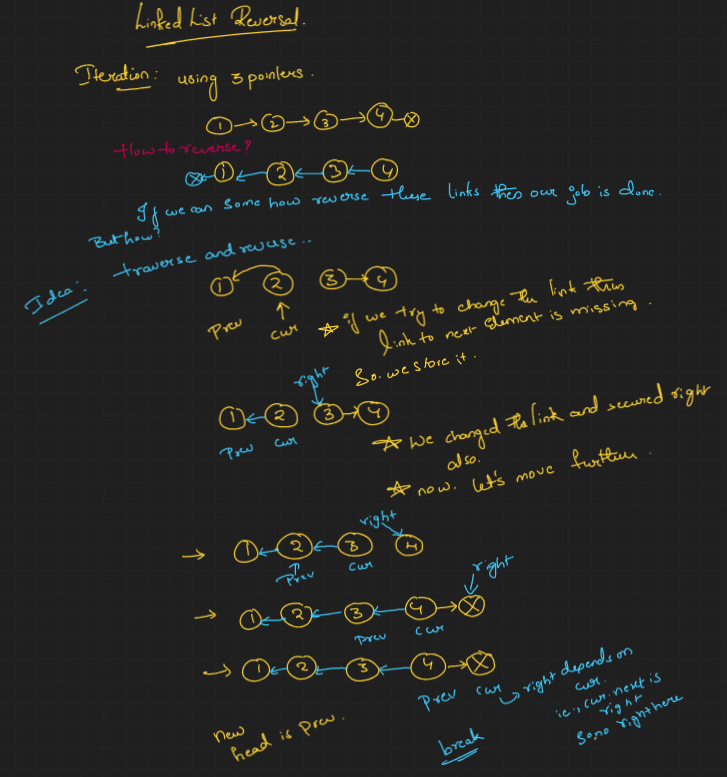 Linked List Reversal.
Iteration: using 3 pointers.
1 → 2 → 3 → 4 → X
How to reverse?
X ← 1 ← 2 ← 3 ← 4
If we can some how reverse these links then our job is done.
But how?
Idea: traverse and reverse..
1 2 3 → 4
Prev cur
☆ if we try to change the link then
link to next element is missing.
So. we store it.
right
1 ← 2 3 → 4
Prev cur
☆ We changed the link and secured right
also.
☆ now. let's move further.
right
→ 1 ← 2 ← 3 4
Prev cur
right
→ 1 ← 2 ← 3 ← 4 → X
Prev cur
→ 1 ← 2 ← 3 ← 4 → X
Prev cur → right depends on
cur.
i.e., cur.next is
right
So no right here
new
head is prev.
break